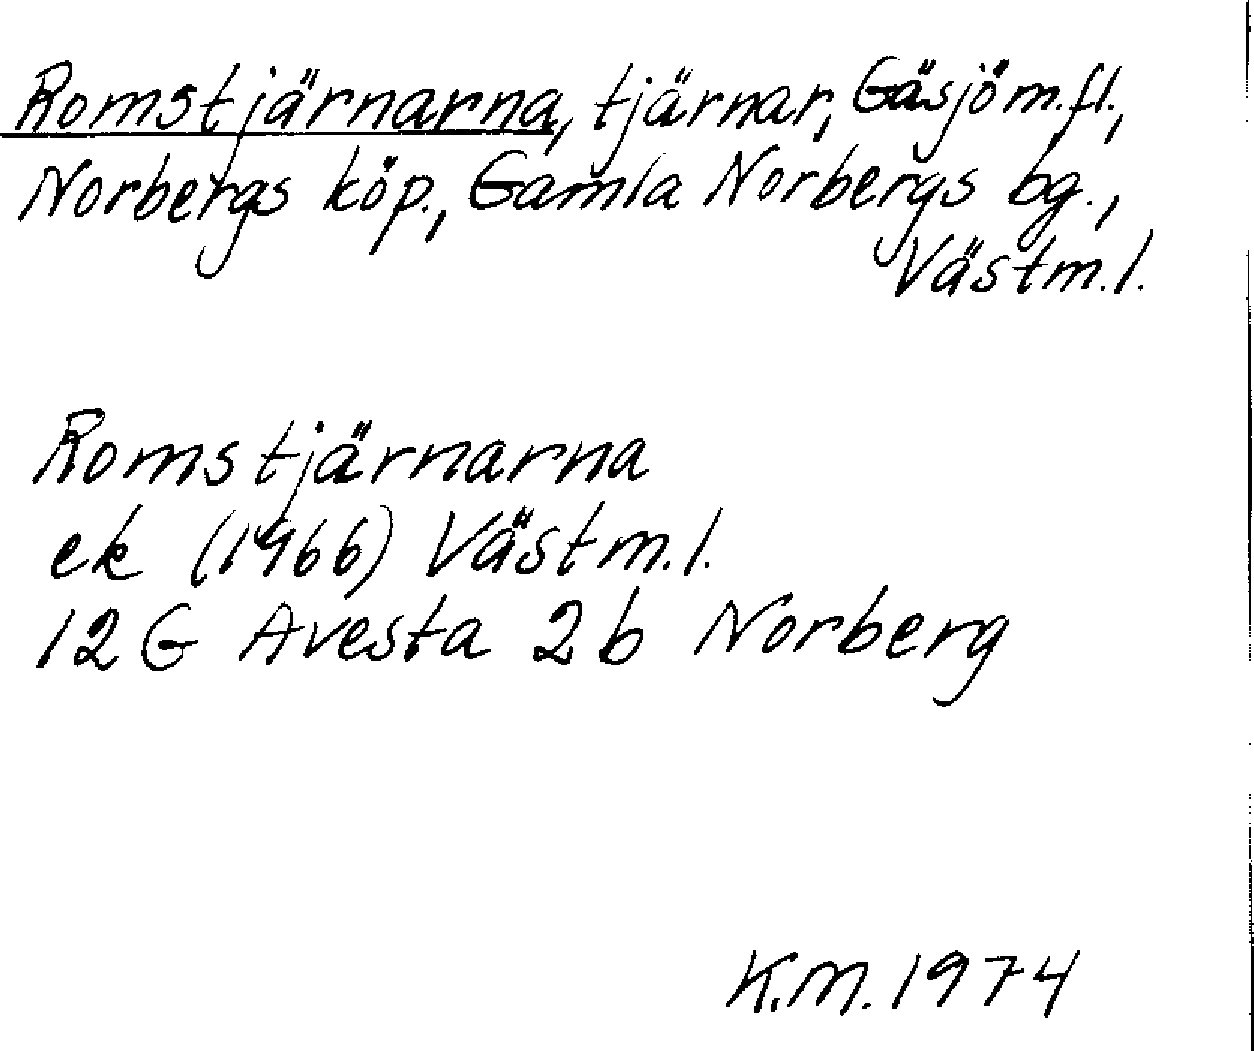 Romstjärnarna, tjärnar, Gäsjö m.fl.,
Norbergs köp., Gamla Norbergs bg.,
Västm.l.
Romstjärnarna
ek (1966) Västm.l.
12 G Avesta 2b Norberg
K.M. 1974